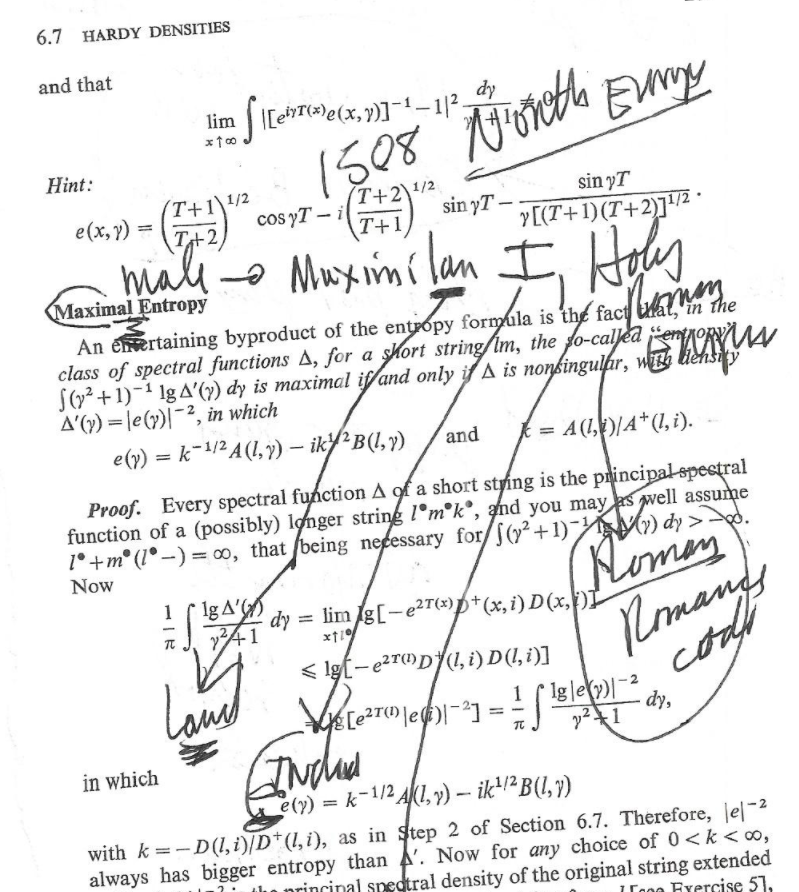 6.7 HARDY DENSITIES
and that
lim ∫ |[e^{iγT(x)}e(x,γ)]^{-1} − 1|^2 dγ
x↑∞
North Europe
1508
Hint:
e(x,γ) = ((T+1)/(T+2))^{1/2} cos γT − i((T+2)/(T+1))^{1/2} sin γT − sin γT/γ[(T+1)(T+2)]^{1/2}.
male → Maximilan I, Holy
Roman
Maximal Entropy
An entertaining byproduct of the entropy formula is the fact that, in the
class of spectral functions Δ, for a short string lm, the so-called "entropy"
∫(γ^2+1)^{-1} lg Δ′(γ) dγ is maximal if and only if Δ is nonsingular, with density
Δ′(γ) = |e(γ)|^{-2}, in which
e(γ) = k^{-1/2}A(l,γ) − ik^{1/2}B(l,γ) and k = A(l,i)/A^+(l,i).
Proof. Every spectral function Δ of a short string is the principal spectral
function of a (possibly) longer string l•m•k•, and you may as well assume
l•+m•(l•−) = ∞, that being necessary for ∫(γ^2+1)^{-1} lg Δ′(γ) dγ > −∞.
Now
Roman
Romans
code
1/π ∫ lg Δ′(γ)/(γ^2+1) dγ = lim lg[−e^{2T(x)}D^+(x,i) D(x,i)]
x↑l•
≤ lg[−e^{2T(l)}D^+(l,i) D(l,i)]
Land
= lg[e^{2T(l)}|e(i)|^{-2}] = 1/π ∫ lg|e(γ)|^{-2}/(γ^2+1) dγ,
in which
e(γ) = k^{-1/2}A(l,γ) − ik^{1/2}B(l,γ)
with k = −D(l,i)/D^+(l,i), as in Step 2 of Section 6.7. Therefore, |e|^{-2}
always has bigger entropy than Δ′. Now for any choice of 0 < k < ∞,
the principal spectral density of the original string extended
[see Exercise 5],